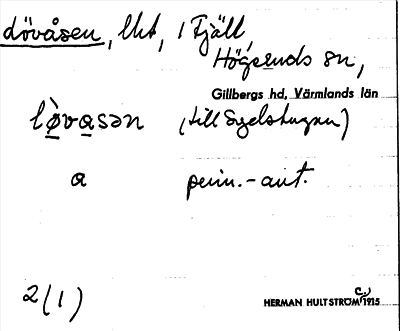 dövåsen, lht, i Fjäll,
Högeruds sn,
Gillbergs hd, Värmlands län
lø̀vasən (till Sgelstugan)
a penn.-ant.
2(1) HERMAN HULTSTRÖM c.) 1915